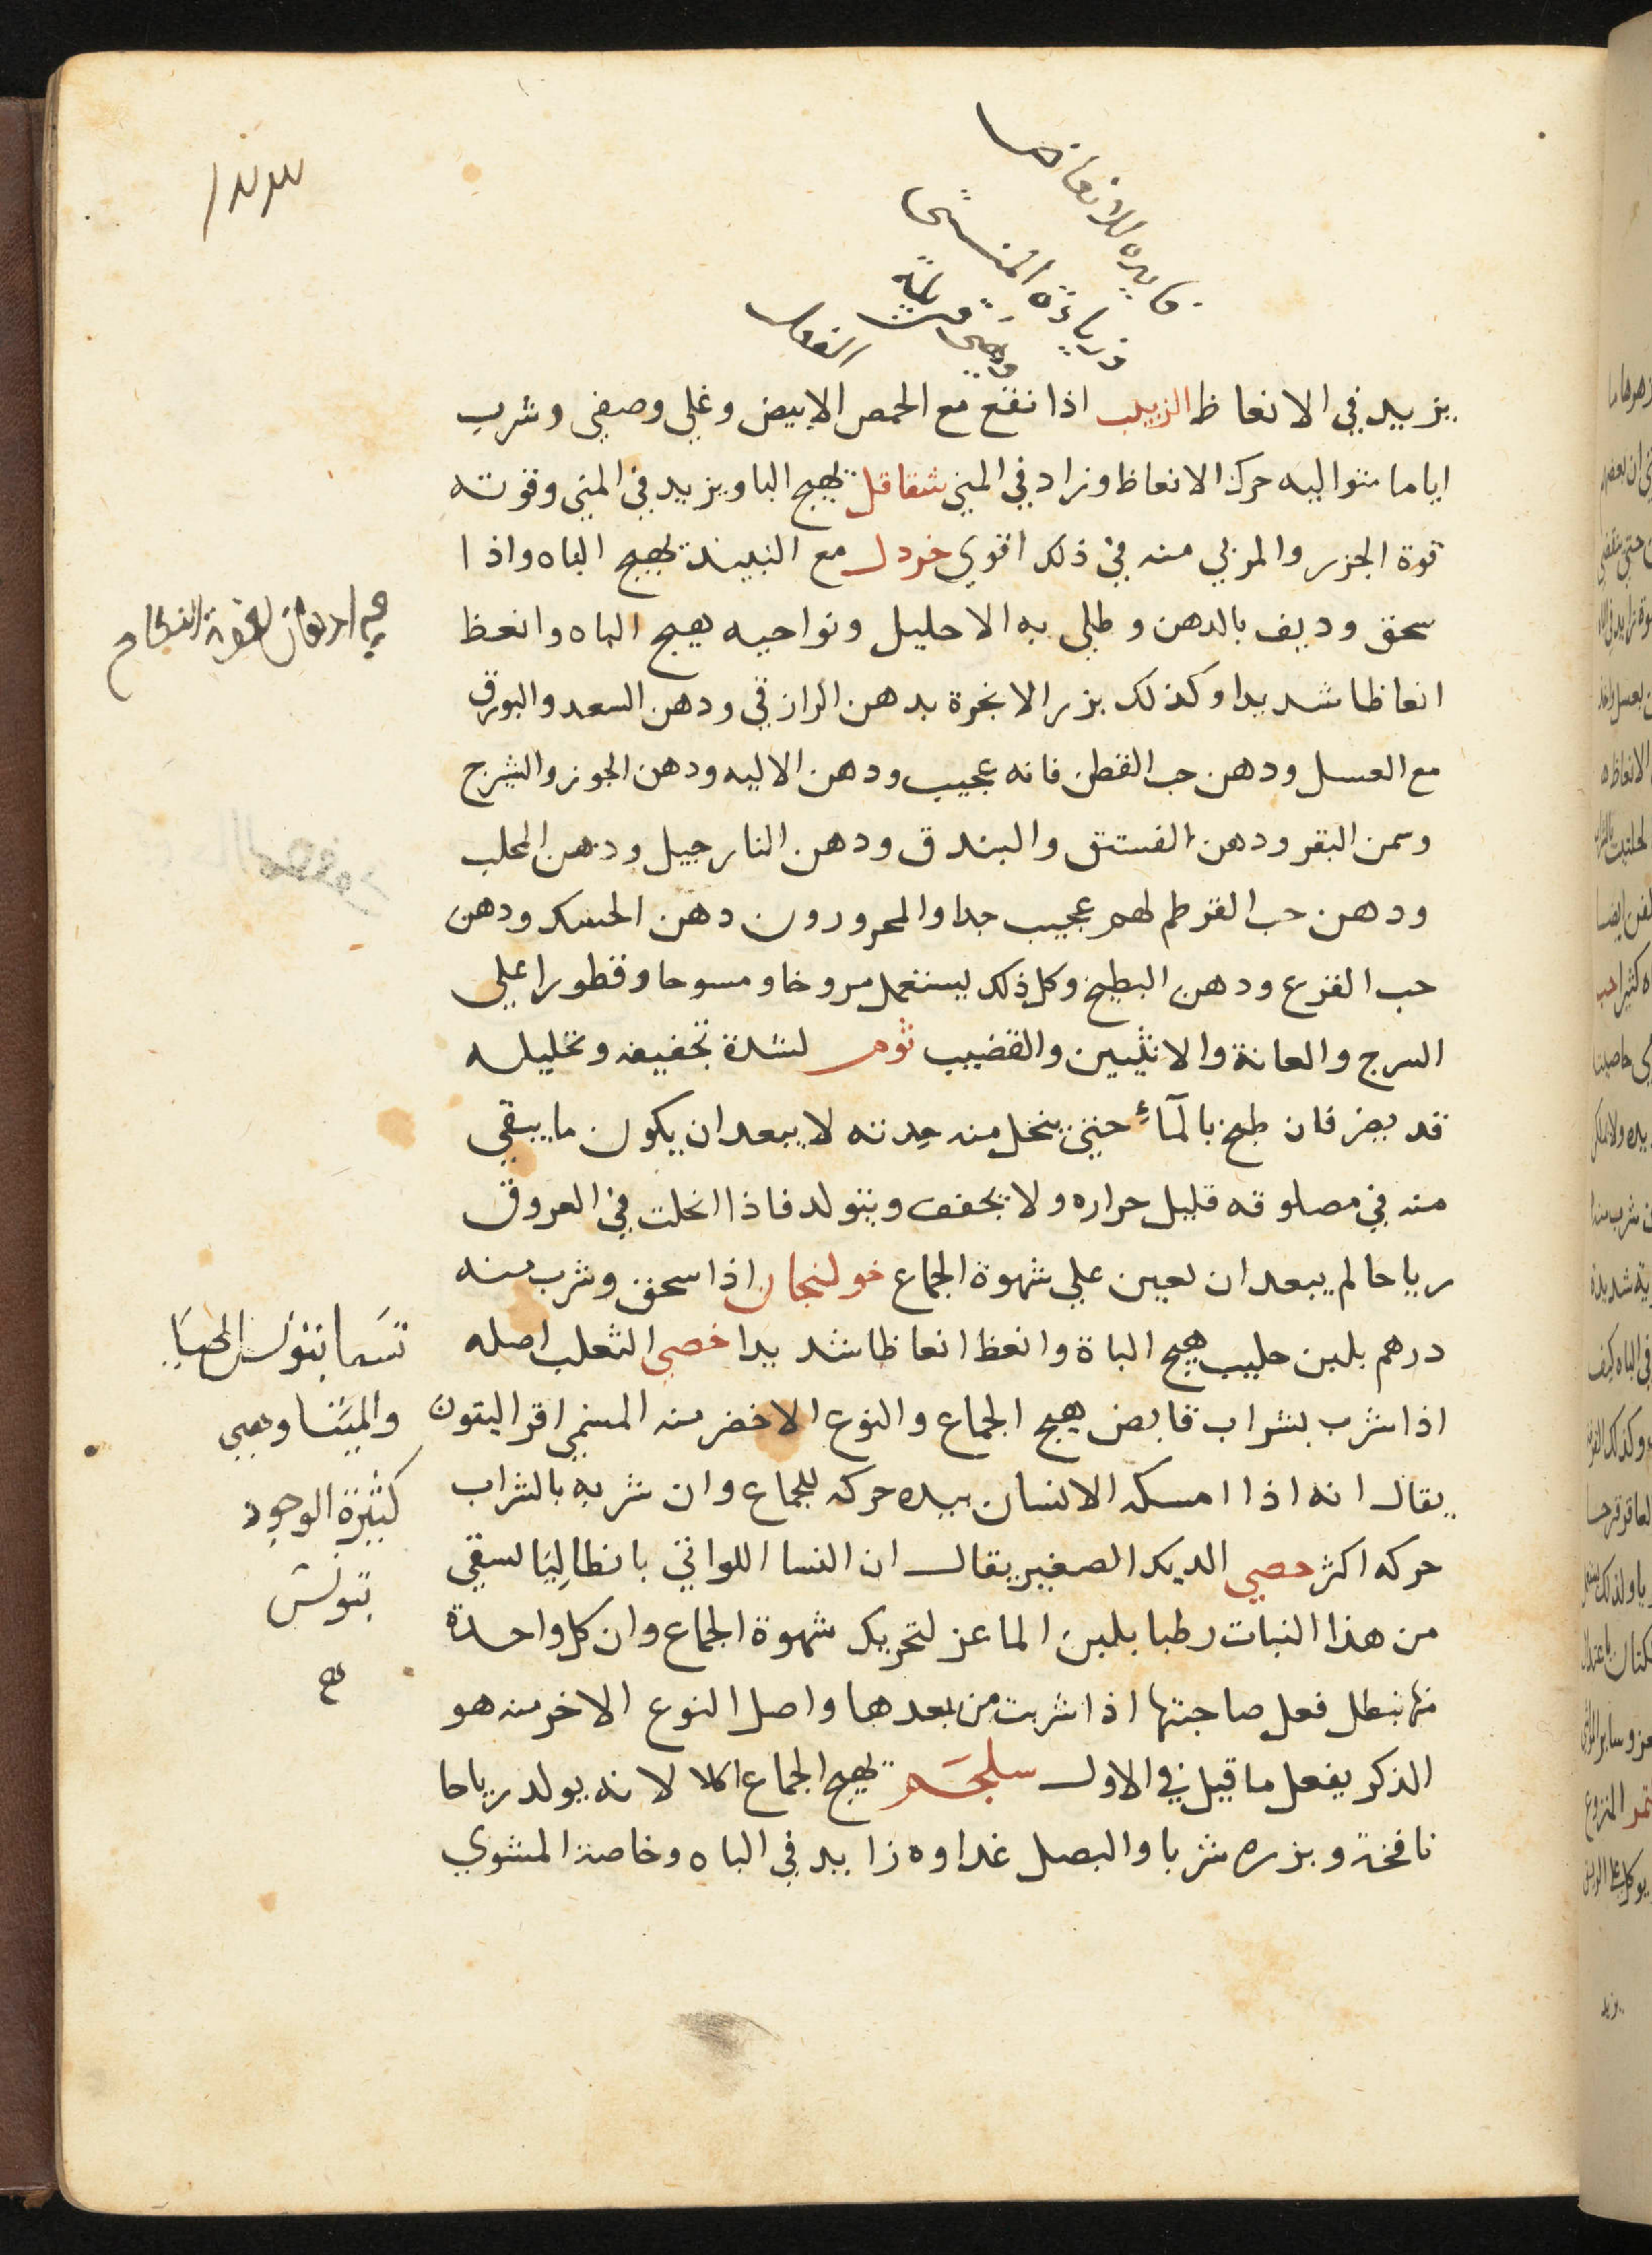 فايده للانعاظ
وزيادة المني
يزيد في الانعاظ الزبيب اذا نقع مع الحمص الابيض وغلي وصفي وشرب
اياما متواليه حرك الانعاظ وزاد في المني شقاقل تهيج البا ويزيد في المني وقوته
قوة الجزر والمربي منه في ذلك اقوي خردل مع النبيذ تهيج الباه واذا
سحق وديف بالدهن وطلي به الاحليل ونواحيه هيج الباه وانعظ
انعاظا شديدا وكذلك بزر الانجرة بدهن الرازقي ودهن السعد والبورق
مع العسل ودهن حب القطن فانه عجيب ودهن الاليه ودهن الجوز والشيرج
وسمن البقر ودهن الفستق والبندق ودهن النارجيل ودهن المحلب
ودهن حب القرطم لهم عجيب جدا والمحرورون دهن الحسك ودهن
حب القرع ودهن البطيخ وكل ذلك يستعمل مروخا ومسوحا وقطورا علي
السرج والعانة والانثيين والقضيب ثوم لشدة تجفيفه وتحليله
قد يضر فان طبخ بالمآء حتي ينحل منه حدته لا يبعد ان يكون ما يبقي
منه في مصلوقه قليل حراره ولا يجفف ويتولد فاذا انحلت في العروق
رياحا لم يبعد ان يعين علي شهوة الجماع خولنجان اذا سحق وشرب منه
درهم بلبن حليب هيج الباة وانعظ انعاظا شديدا خصي الثعلب اصله
اذا شرب بشراب قابض هيج الجماع والنوع الاخضر منه المسمي اقراليتون
يقال انه اذا امسكه الانسان بيده حركه للجماع وان شربه بالشراب
حركه اكثر خصي الديك الصغير يقال ان النسا اللواتي بانطاليا لسقي
من هذا النبات رطبا بلبن الماعز لتحريك شهوة الجماع وان كل واحدة
منها تبطل فعل صاحبتها اذا شربت من بعدها واصل النوع الاخر منه هو
الذكر يفعل ما قيل في الاول سلجم تهيج الجماع اكلا لانه يولد رياحا
نافخة وبزره شربا والبصل غداوه زايد في الباه وخاصة المشوي
تسما بتونس الحيا
والميتا وهي
كثيرة الوجود
بتونس
صح